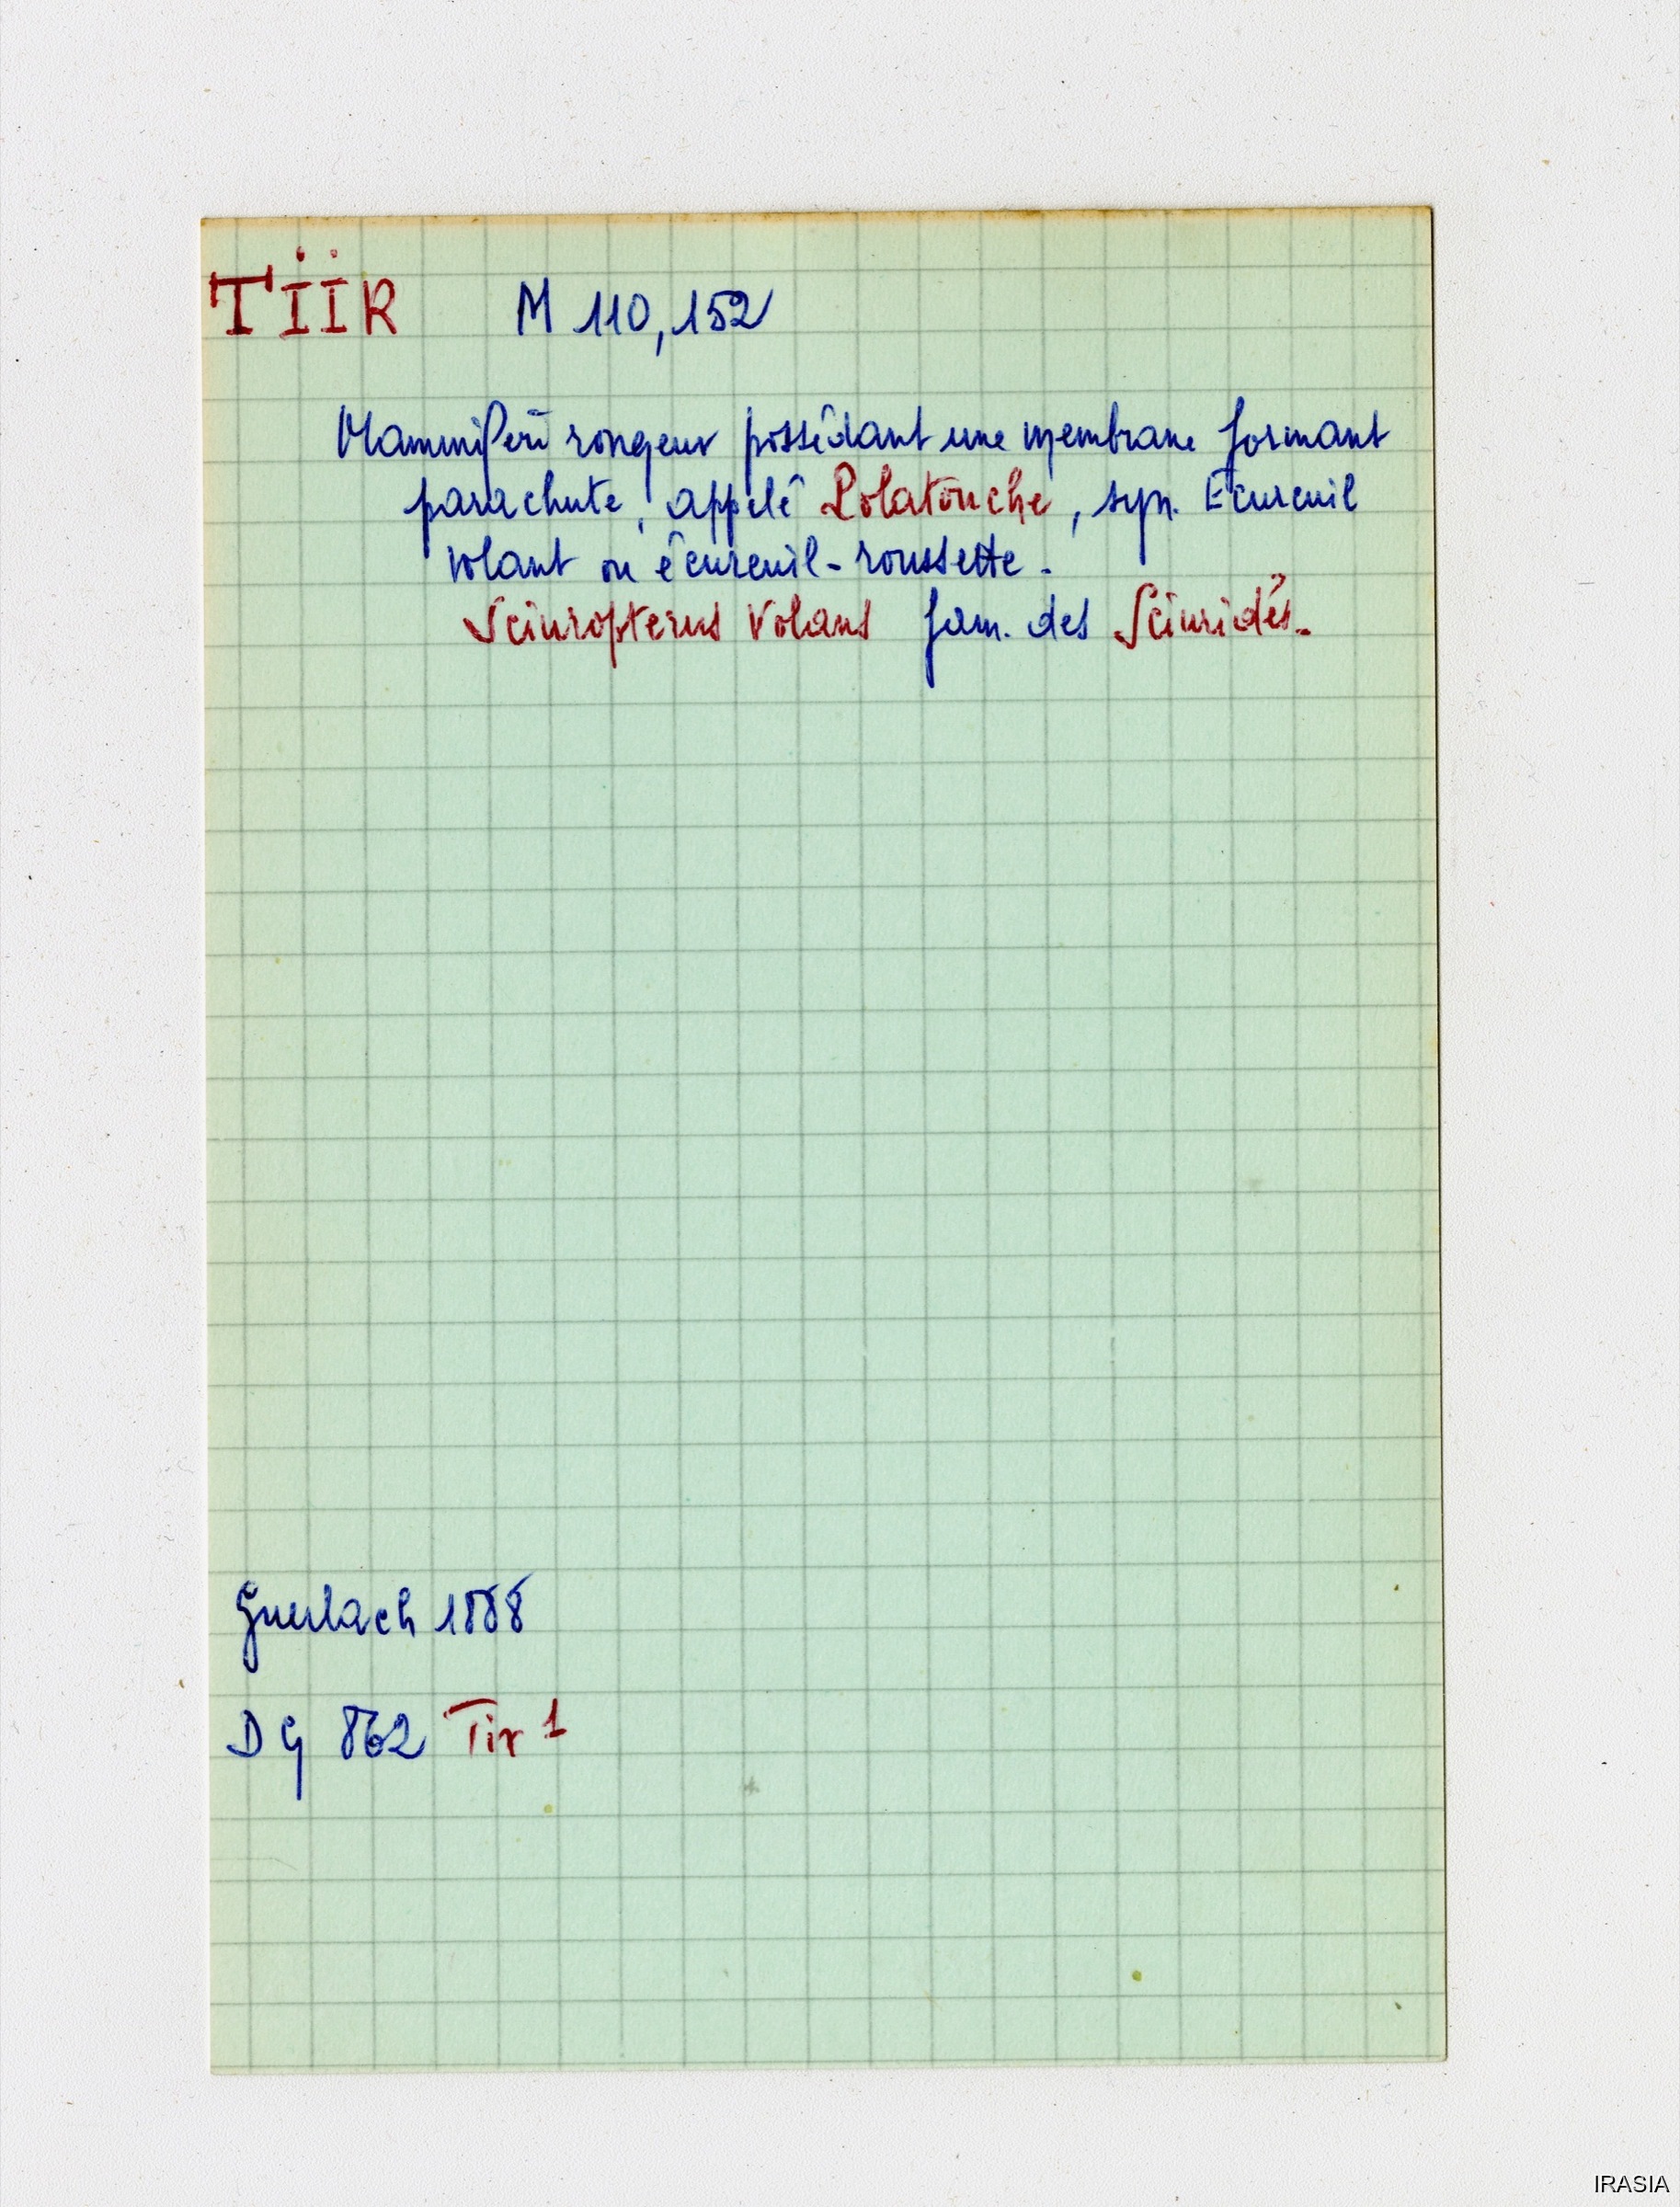 TIIR M 110,152
Mammifère rongeur possédant une membrane formant
parachute, appelé Polatouche, syn. Ecureuil
volant ou écureuil-roussette.
Sciuropterus Volans fam. des Sciuridés.
Guerlach 1888
DG 862 Tir 1
IRASIA